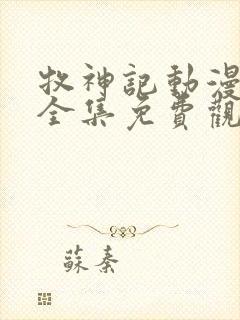 牧神記動漫
全集免費觀
蘇秦